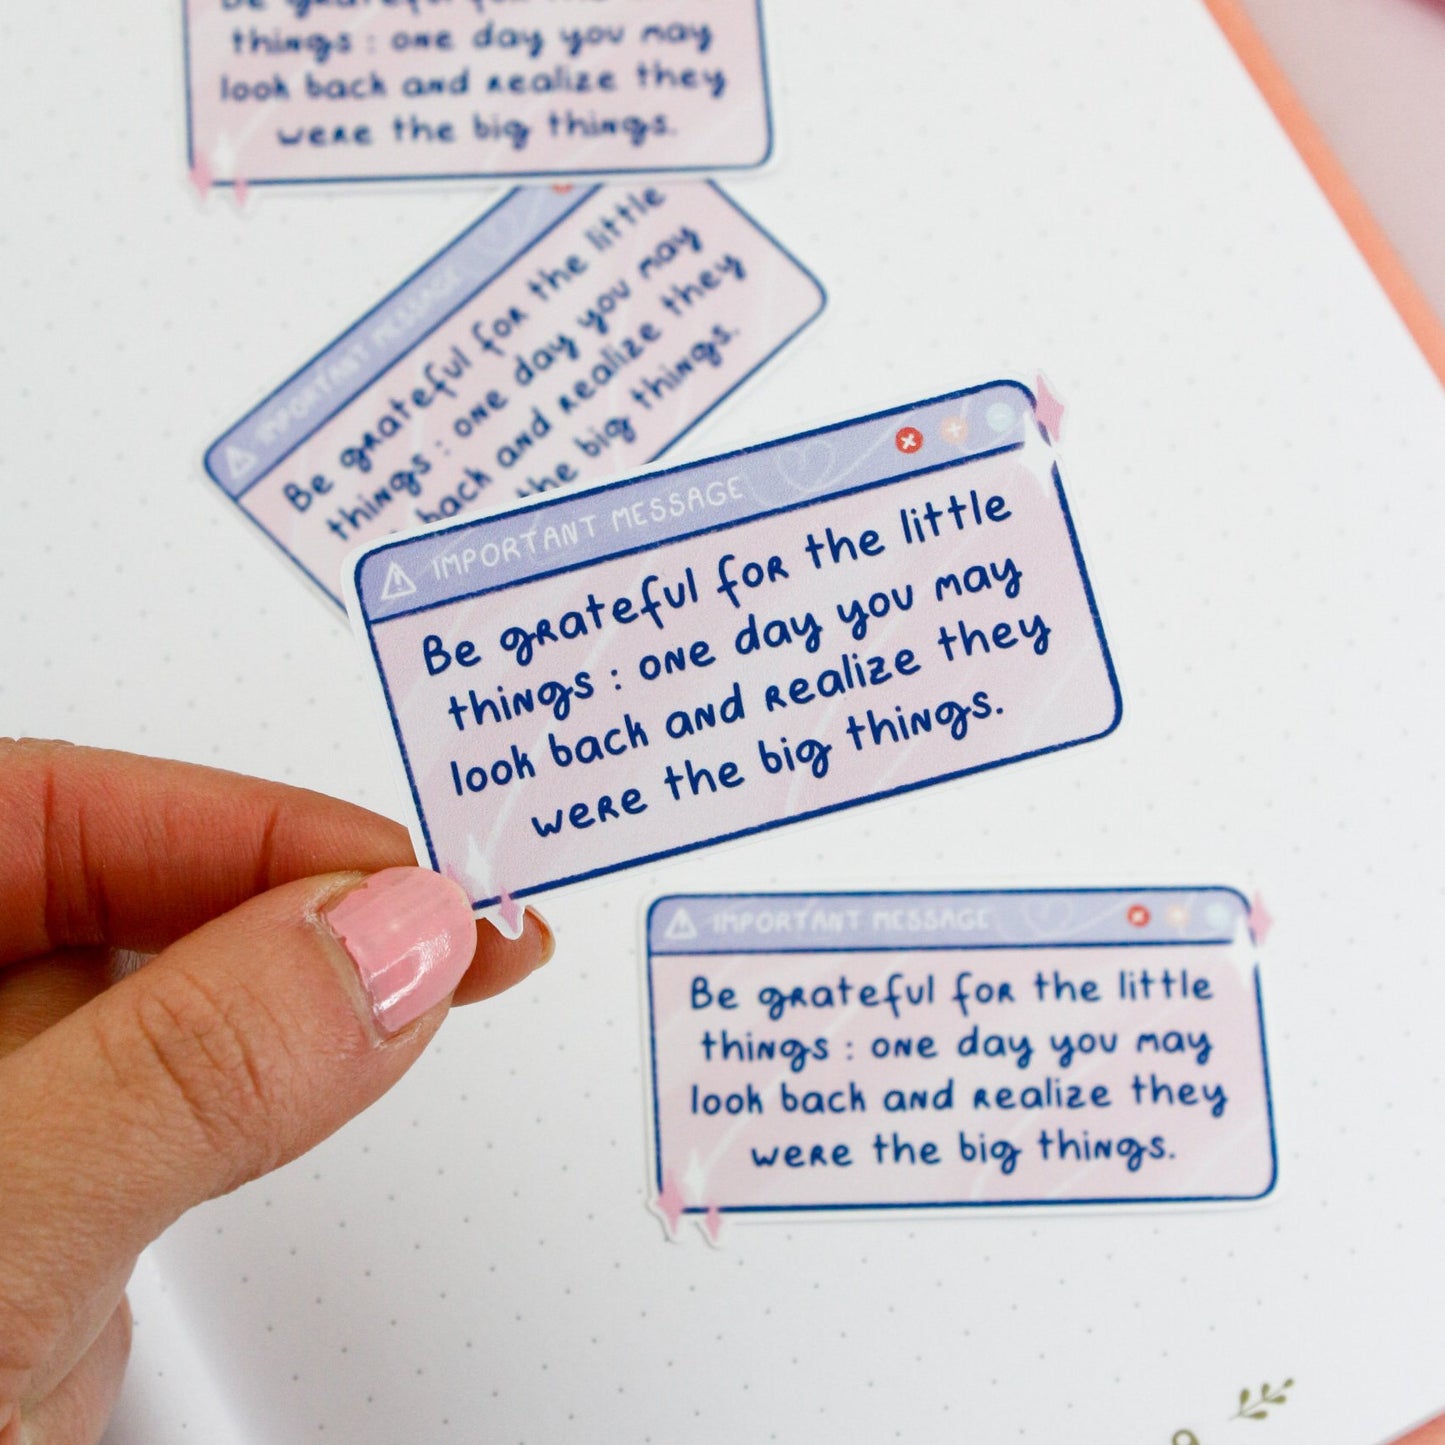 Be grateful for the little
things : one day you may
look back and realize they
were the big things.
IMPORTANT MESSAGE
Be grateful for the little
things : one day you may
back and realize they
the big things.
IMPORTANT MESSAGE
Be grateful for the little
things : one day you may
look back and realize they
were the big things.
IMPORTANT MESSAGE
Be grateful for the little
things : one day you may
look back and realize they
were the big things.